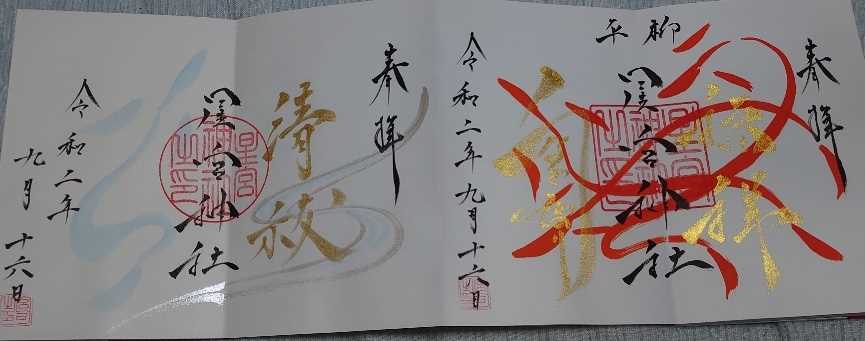 奉拝
平柳
星宮神社
令和二年九月十六日
奉拝
清祓
星宮神社
令和二年
九月十六日